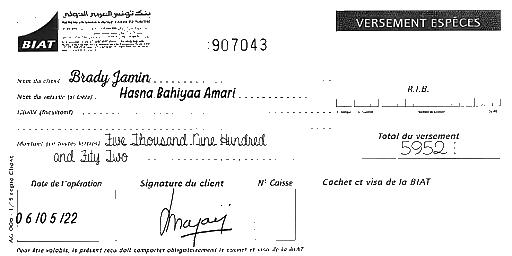 بنك تونس العربي الدولي
BIAT
VERSEMENT ESPÈCES
907043
Nom du client Brady Jamin
Nom du remettant (si tiers) Hasna Bahiyaa Amari
R.I.B.
Libellé (facultatif)
Montant (en toutes lettres) Five Thousand Nine Hundred
and Fifty Two
Total du versement
5952
Date de l'opération
Signature du client
N° Caisse
Cachet et visa de la BIAT
06/05/22
Pour être valable, le présent reçu doit comporter obligatoirement le cachet et visa de la BIAT